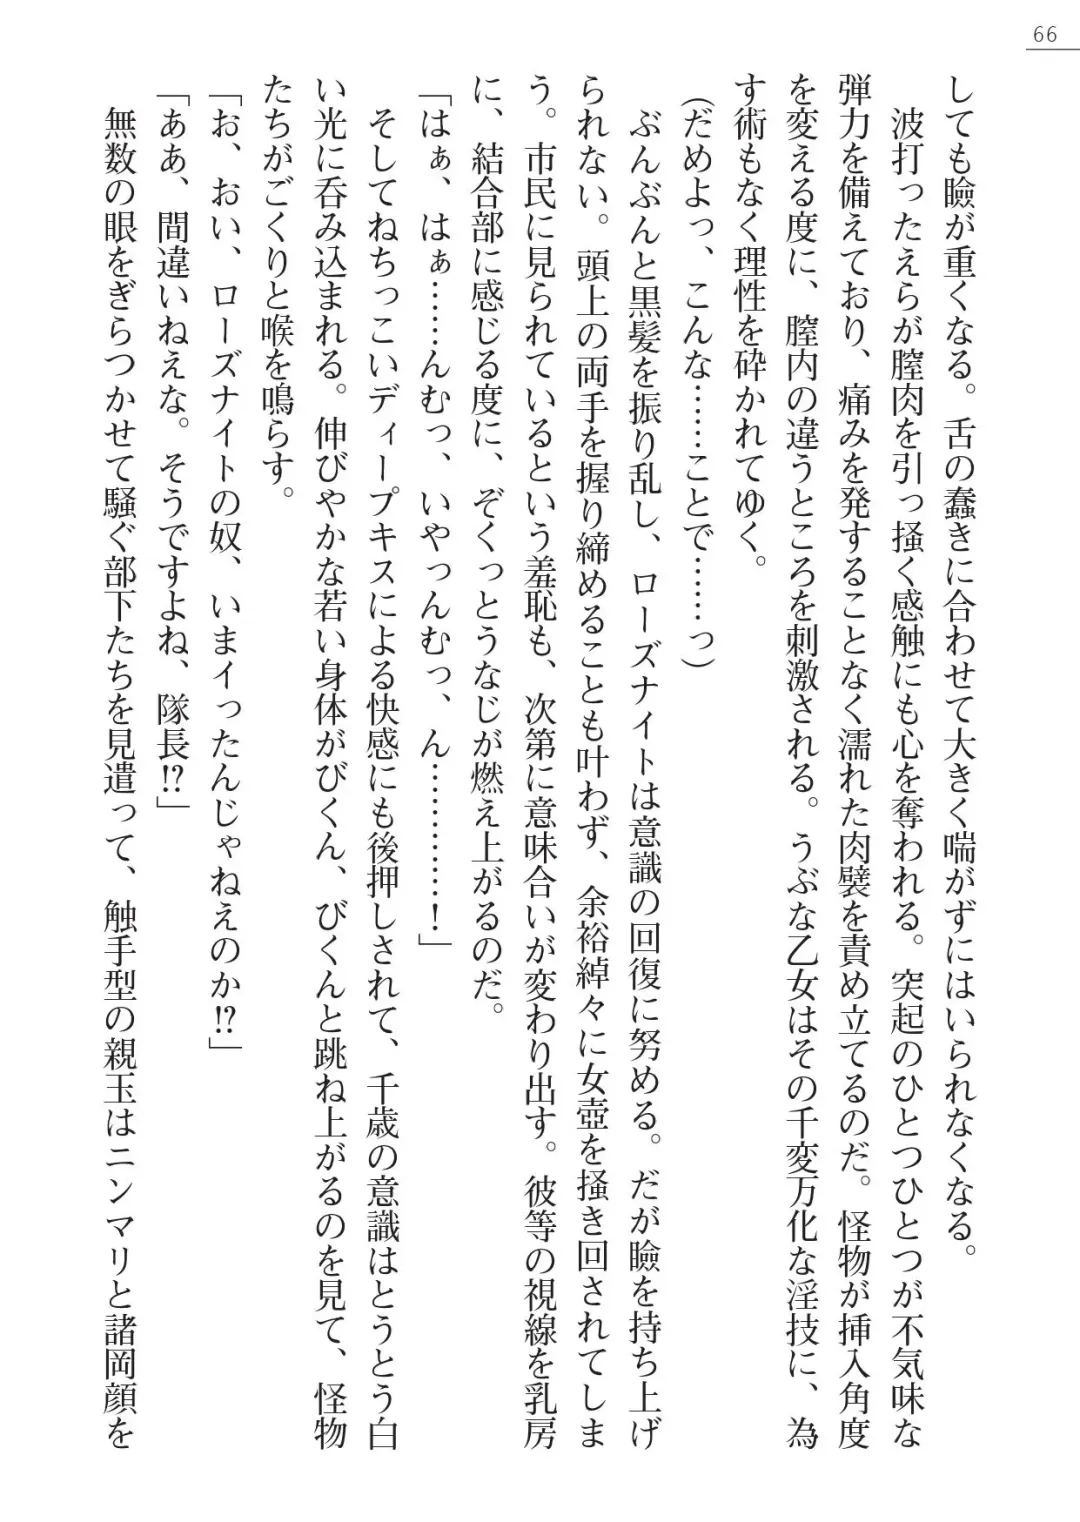 66
しても瞼が重くなる。舌の蠢きに合わせて大きく喘がずにはいられなくなる。
波打ったえらが膣肉を引っ掻く感触にも心を奪われる。突起のひとつひとつが不気味な
弾力を備えており、痛みを発することなく濡れた肉襞を責め立てるのだ。怪物が挿入角度
を変える度に、膣内の違うところを刺激される。うぶな乙女はその千変万化な淫技に、為
す術もなく理性を砕かれてゆく。
(だめよっ、こんな……ことで……っ)
ぶんぶんと黒髪を振り乱し、ローズナイトは意識の回復に努める。だが瞼を持ち上げ
られない。頭上の両手を握り締めることも叶わず、余裕綽々に女壺を掻き回されてしま
う。市民に見られているという羞恥も、次第に意味合いが変わり出す。彼等の視線を乳房
に、結合部に感じる度に、ぞくっとうなじが燃え上がるのだ。
「はぁ、はぁ……んむっ、いやっんむっ、ん…………！」
そしてねちっこいディープキスによる快感にも後押しされて、千歳の意識はとうとう白
い光に呑み込まれる。伸びやかな若い身体がびくん、びくんと跳ね上がるのを見て、怪物
たちがごくりと喉を鳴らす。
「お、おい、ローズナイトの奴、いまイったんじゃねえのか!?」
「ああ、間違いねえな。そうですよね、隊長!?」
無数の眼をぎらつかせて騒ぐ部下たちを見遣って、触手型の親玉はニンマリと諸岡顔を